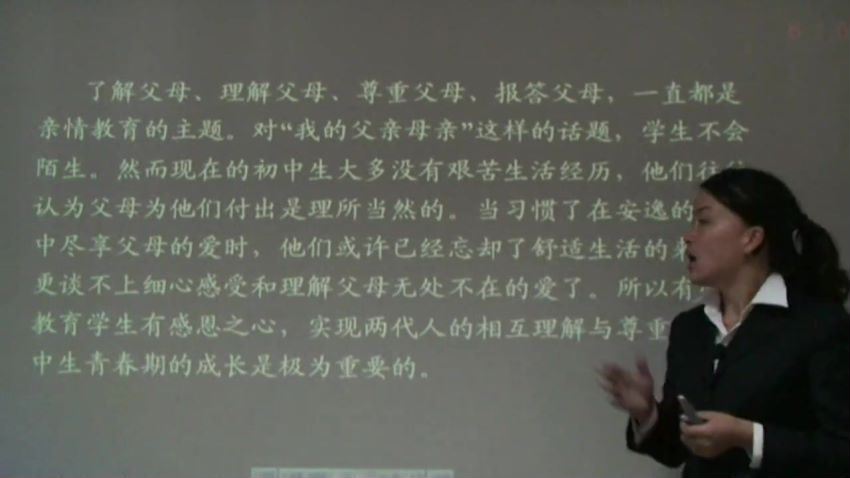 了解父母、理解父母、尊重父母、报答父母，一直都是
亲情教育的主题。对“我的父亲母亲”这样的话题，学生不会
陌生。然而现在的初中生大多没有艰苦生活经历，他们往往
认为父母为他们付出是理所当然的。当习惯了在安逸的
中尽享父母的爱时，他们或许已经忘却了舒适生活的来
更谈不上细心感受和理解父母无处不在的爱了。所以有
教育学生有感恩之心，实现两代人的相互理解与尊重
中生青春期的成长是极为重要的。